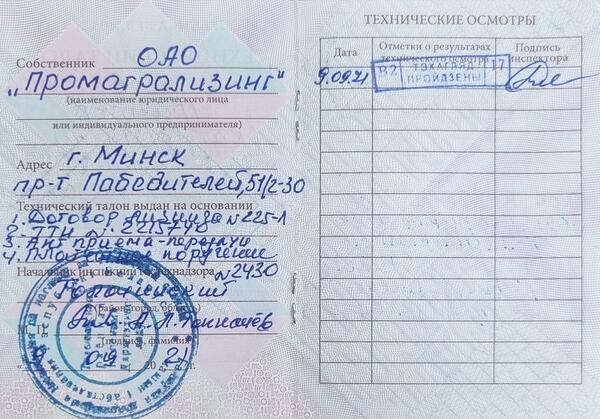 Собственник ОАО
„Промагролизинг"
(наименование юридического лица
или индивидуального предпринимателя)
Адрес г. Минск
пр-т Победителей, 51/2-30
Технический талон выдан на основании
1. Договор лизинга №225-Л
2. ТТН
3. Акт приема-передачи
4. Платежное поручение
Начальник инспекции гостехнадзора №2430
(район, город, область)
М. П.
(подпись, фамилия)
9 09 21
ТЕХНИЧЕСКИЕ ОСМОТРЫ
Дата
Отметки о результатах технического осмотра
Подпись инспектора
9.09.21
В2 ТЭХАГЛЯД ПРОЙДЗЕНЫ 17